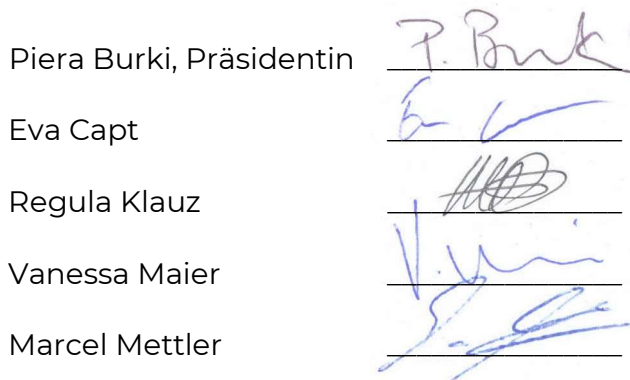 Piera Burki, Präsidentin P. Burki
Eva Capt
Regula Klauz
Vanessa Maier
Marcel Mettler